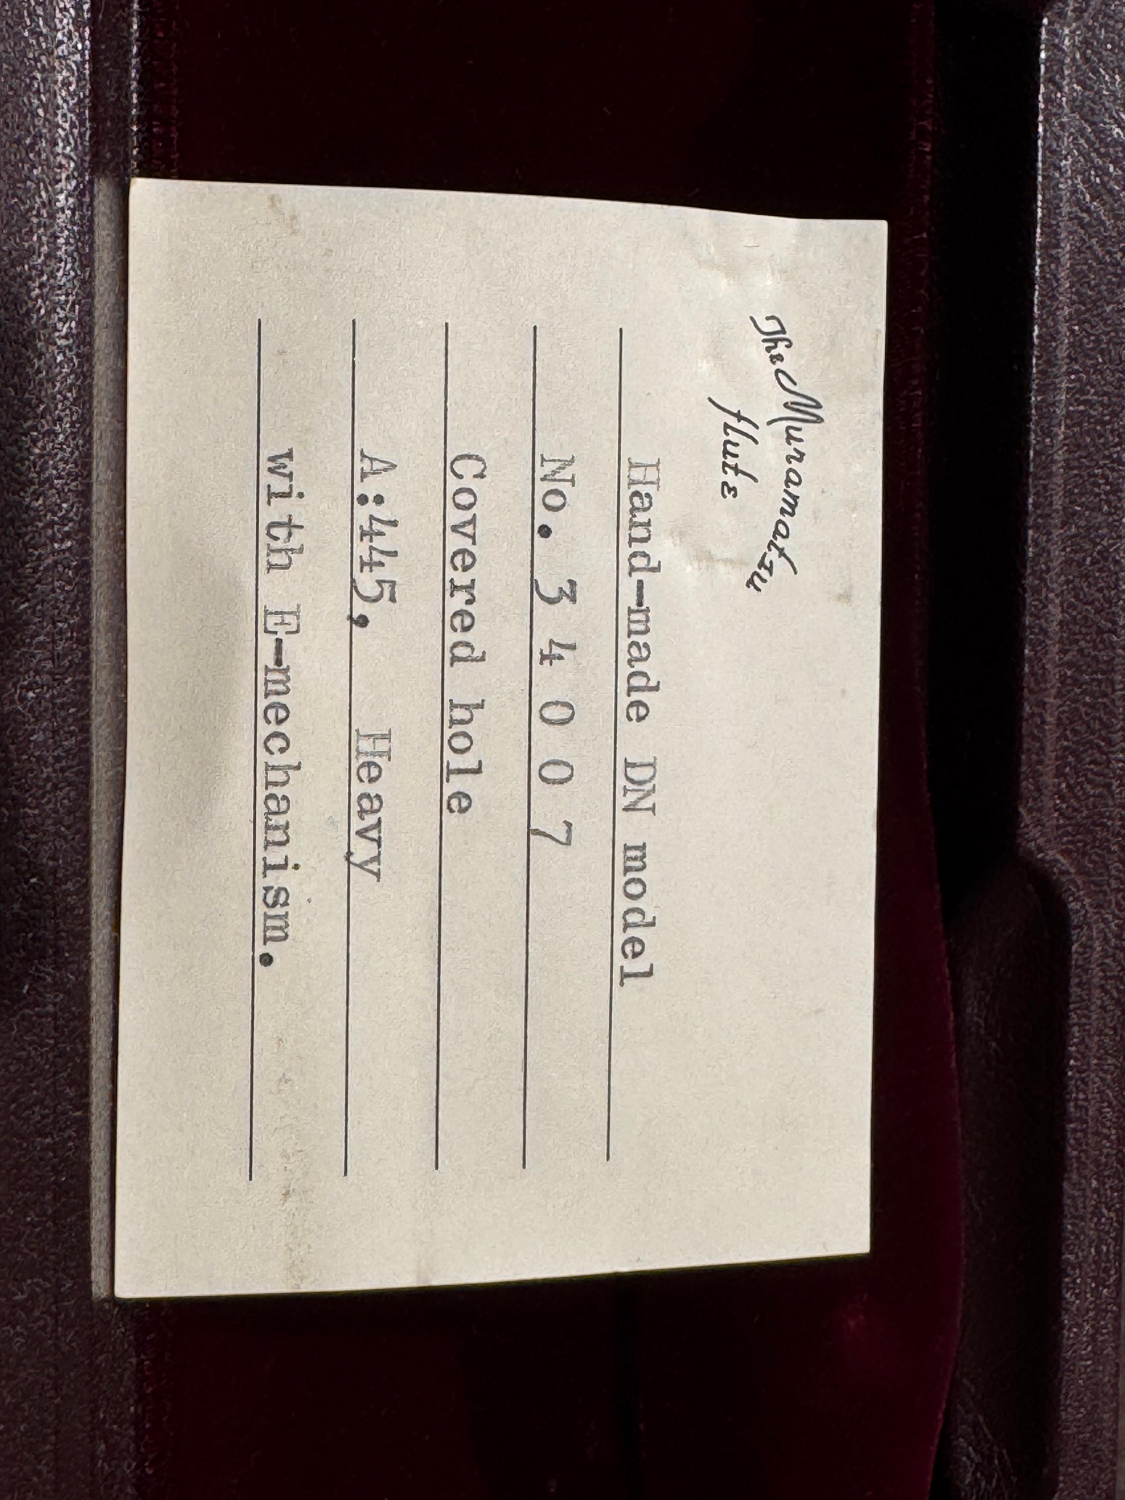 The Muramatsu
flute
Hand-made DN model
No. 3 4 0 0 7
Covered hole
A:445, Heavy
with E-mechanism.